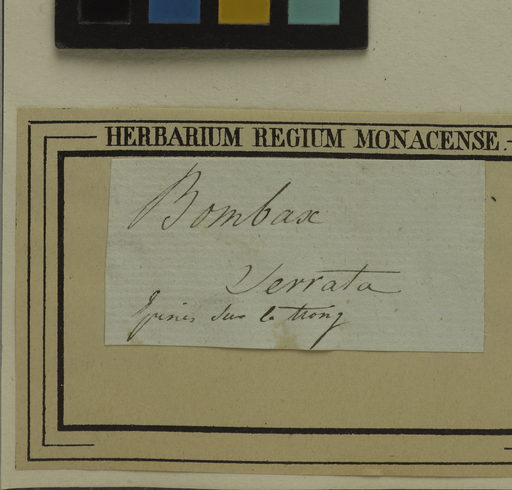 HERBARIUM REGIUM MONACENSE.
Bombax
Serrata
Epines sur le tronq